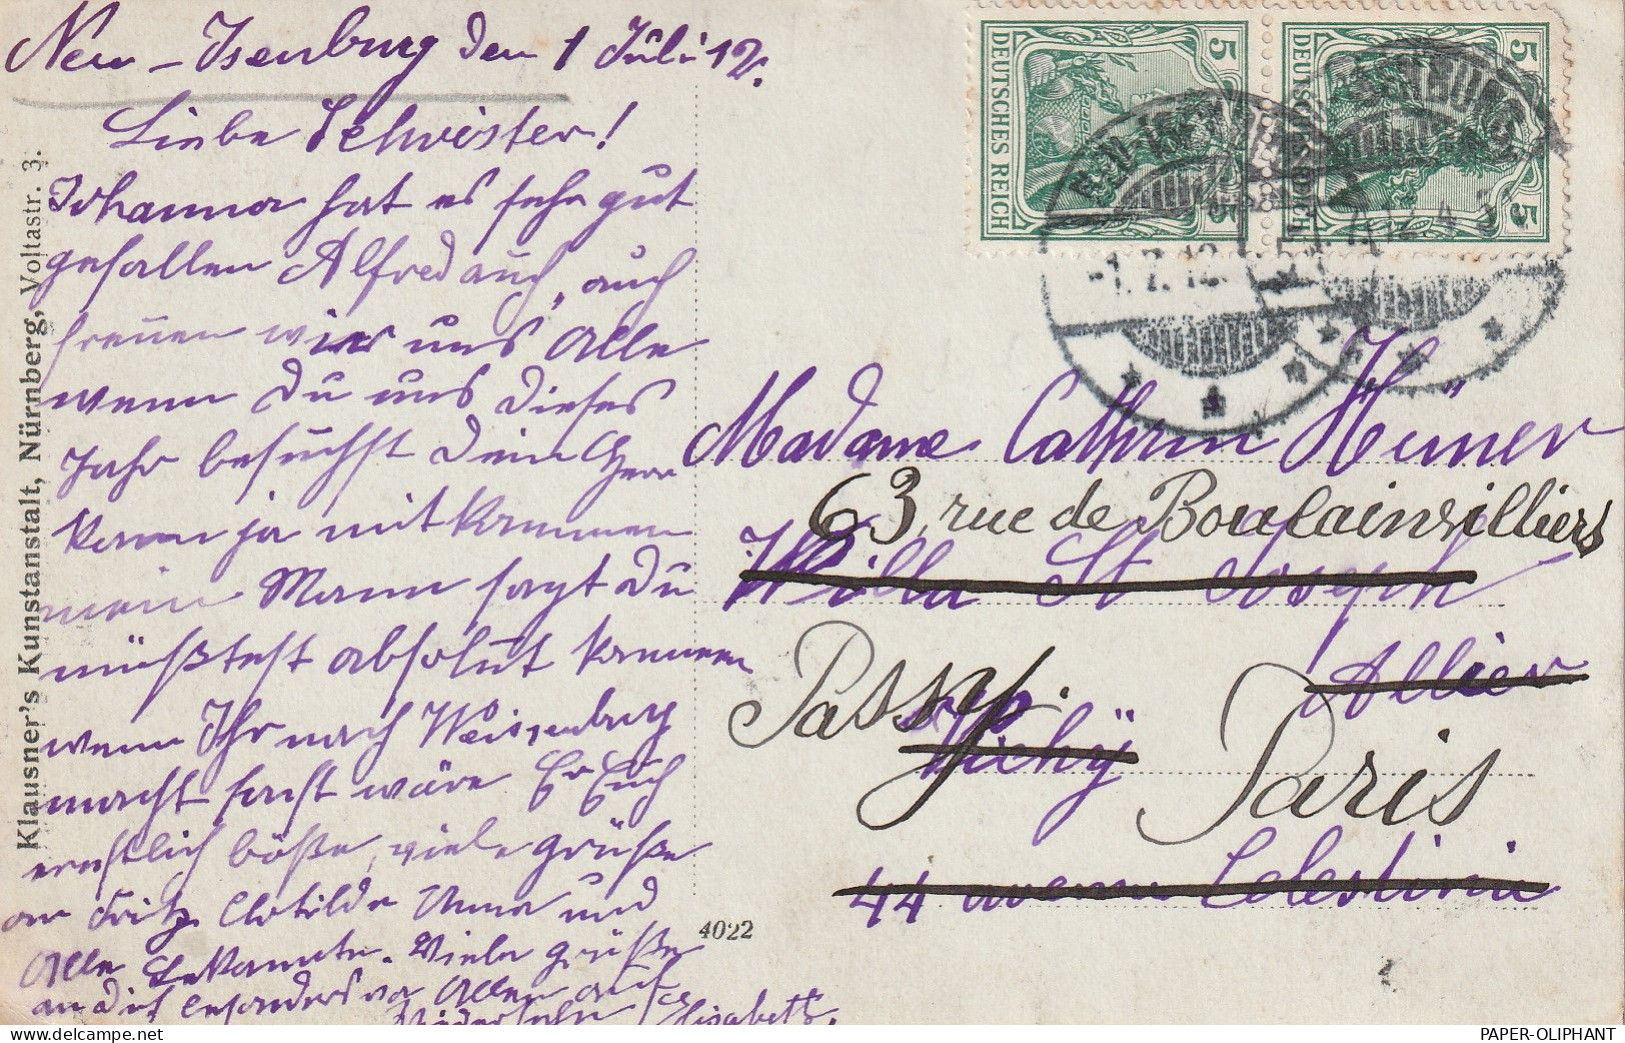 Neu-Isenburg den 1 Juli 12.
Liebe Schwister!
Johanna hat es sehr gut
gefallen Alfred auch, auch
freuen wir uns Alle
wenn Du uns dieses
Jahr besuchst Dein Herr
kann ja mit kommen
mein Mann sagt Du
müßtest absolut kommen
wenn Ihr nach Weissenburg
macht sonst wäre Er Euch
ernstlich böße, viele grüße
an Fritz Clotilde Anna und
Alle Bekannte. Viele grüße
an Dich besonders von Allen auf
Wiedersehn Elisabeth.
Klausner's Kunstanstalt, Nürnberg, Voltastr. 3.
4022
DEUTSCHES REICH
5 5
DEUTSCHES REICH
5 5
NEU-ISENBURG
1.7.12.
Madame Cathrin Hüner
63, rue de Boulainvilliers
Willa St Joseph
Passy.
Allier
Vichÿ
Paris
44 avenue Celestine
PAPER-OLIPHANT